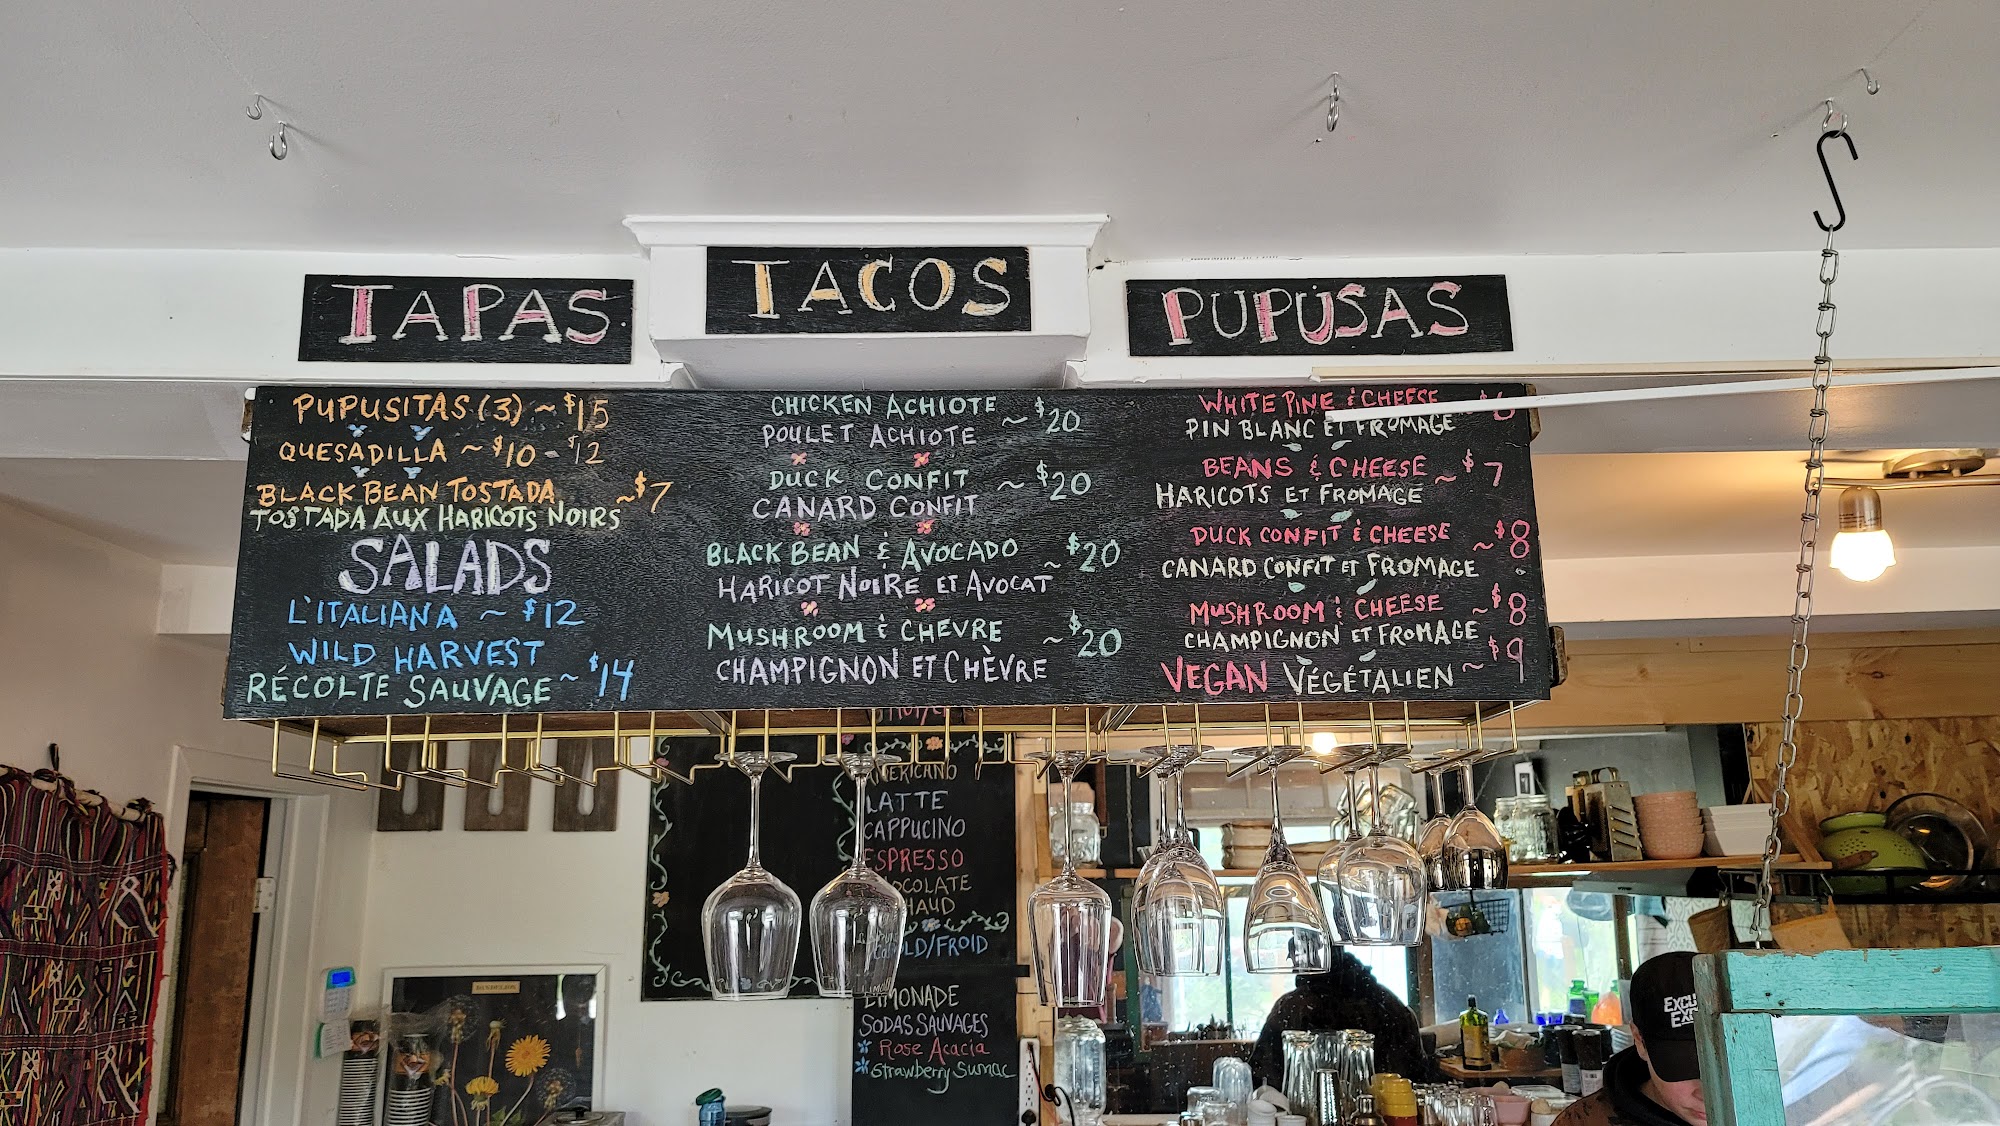 TAPAS
TACOS
PUPUSAS
PUPUSITAS (3) ~ $15
QUESADILLA ~ $10 - $12
BLACK BEAN TOSTADA ~ $7
TOSTADA AUX HARICOTS NOIRS
SALADS
L'ITALIANA ~ $12
WILD HARVEST
RÉCOLTE SAUVAGE ~ $14
CHICKEN ACHIOTE ~ $20
POULET ACHIOTE
DUCK CONFIT ~ $20
CANARD CONFIT
BLACK BEAN & AVOCADO ~ $20
HARICOT NOIRE ET AVOCAT
MUSHROOM & CHEVRE ~ $20
CHAMPIGNON ET CHÈVRE
WHITE PINE & CHEESE
PIN BLANC ET FROMAGE
BEANS & CHEESE ~ $7
HARICOTS ET FROMAGE
DUCK CONFIT & CHEESE ~ $8
CANARD CONFIT ET FROMAGE
MUSHROOM & CHEESE ~ $8
CHAMPIGNON ET FROMAGE
VEGAN VÉGÉTALIEN ~ $9
AMERICANO
LATTE
CAPPUCINO
ESPRESSO
CHOCOLATE
CHAUD
COLD/FROID
LIMONADE
SODAS SAUVAGES
Rose Acacia
Strawberry Sumac